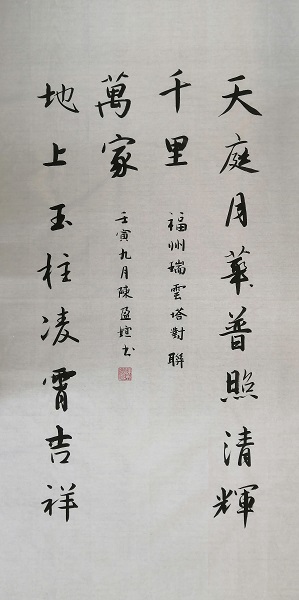 天庭月華普照清輝
千里
福州瑞雲塔對聯
地上玉柱凌霄吉祥
萬家
壬寅九月陳盈媗書